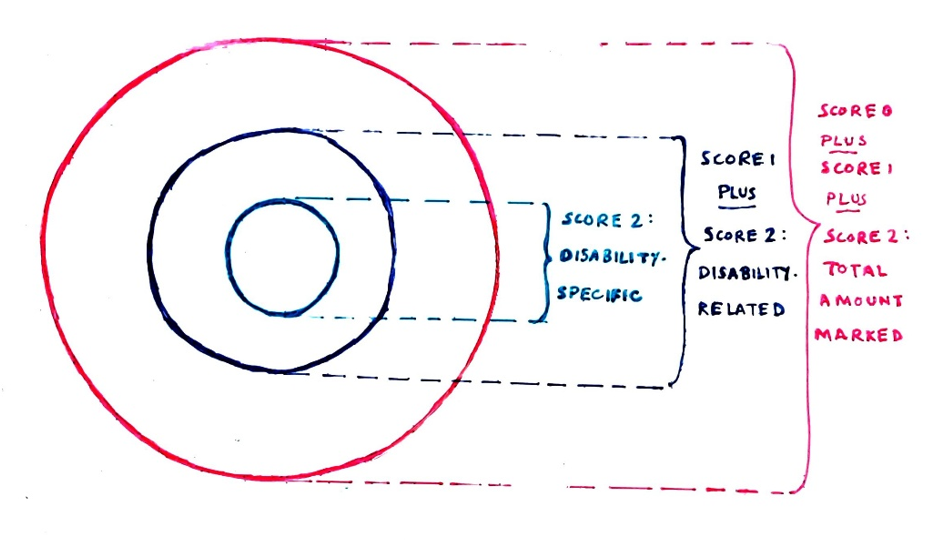 SCORE 2:
DISABILITY-
SPECIFIC
SCORE 1
PLUS
SCORE 2:
DISABILITY-
RELATED
SCORE 0
PLUS
SCORE 1
PLUS
SCORE 2:
TOTAL
AMOUNT
MARKED